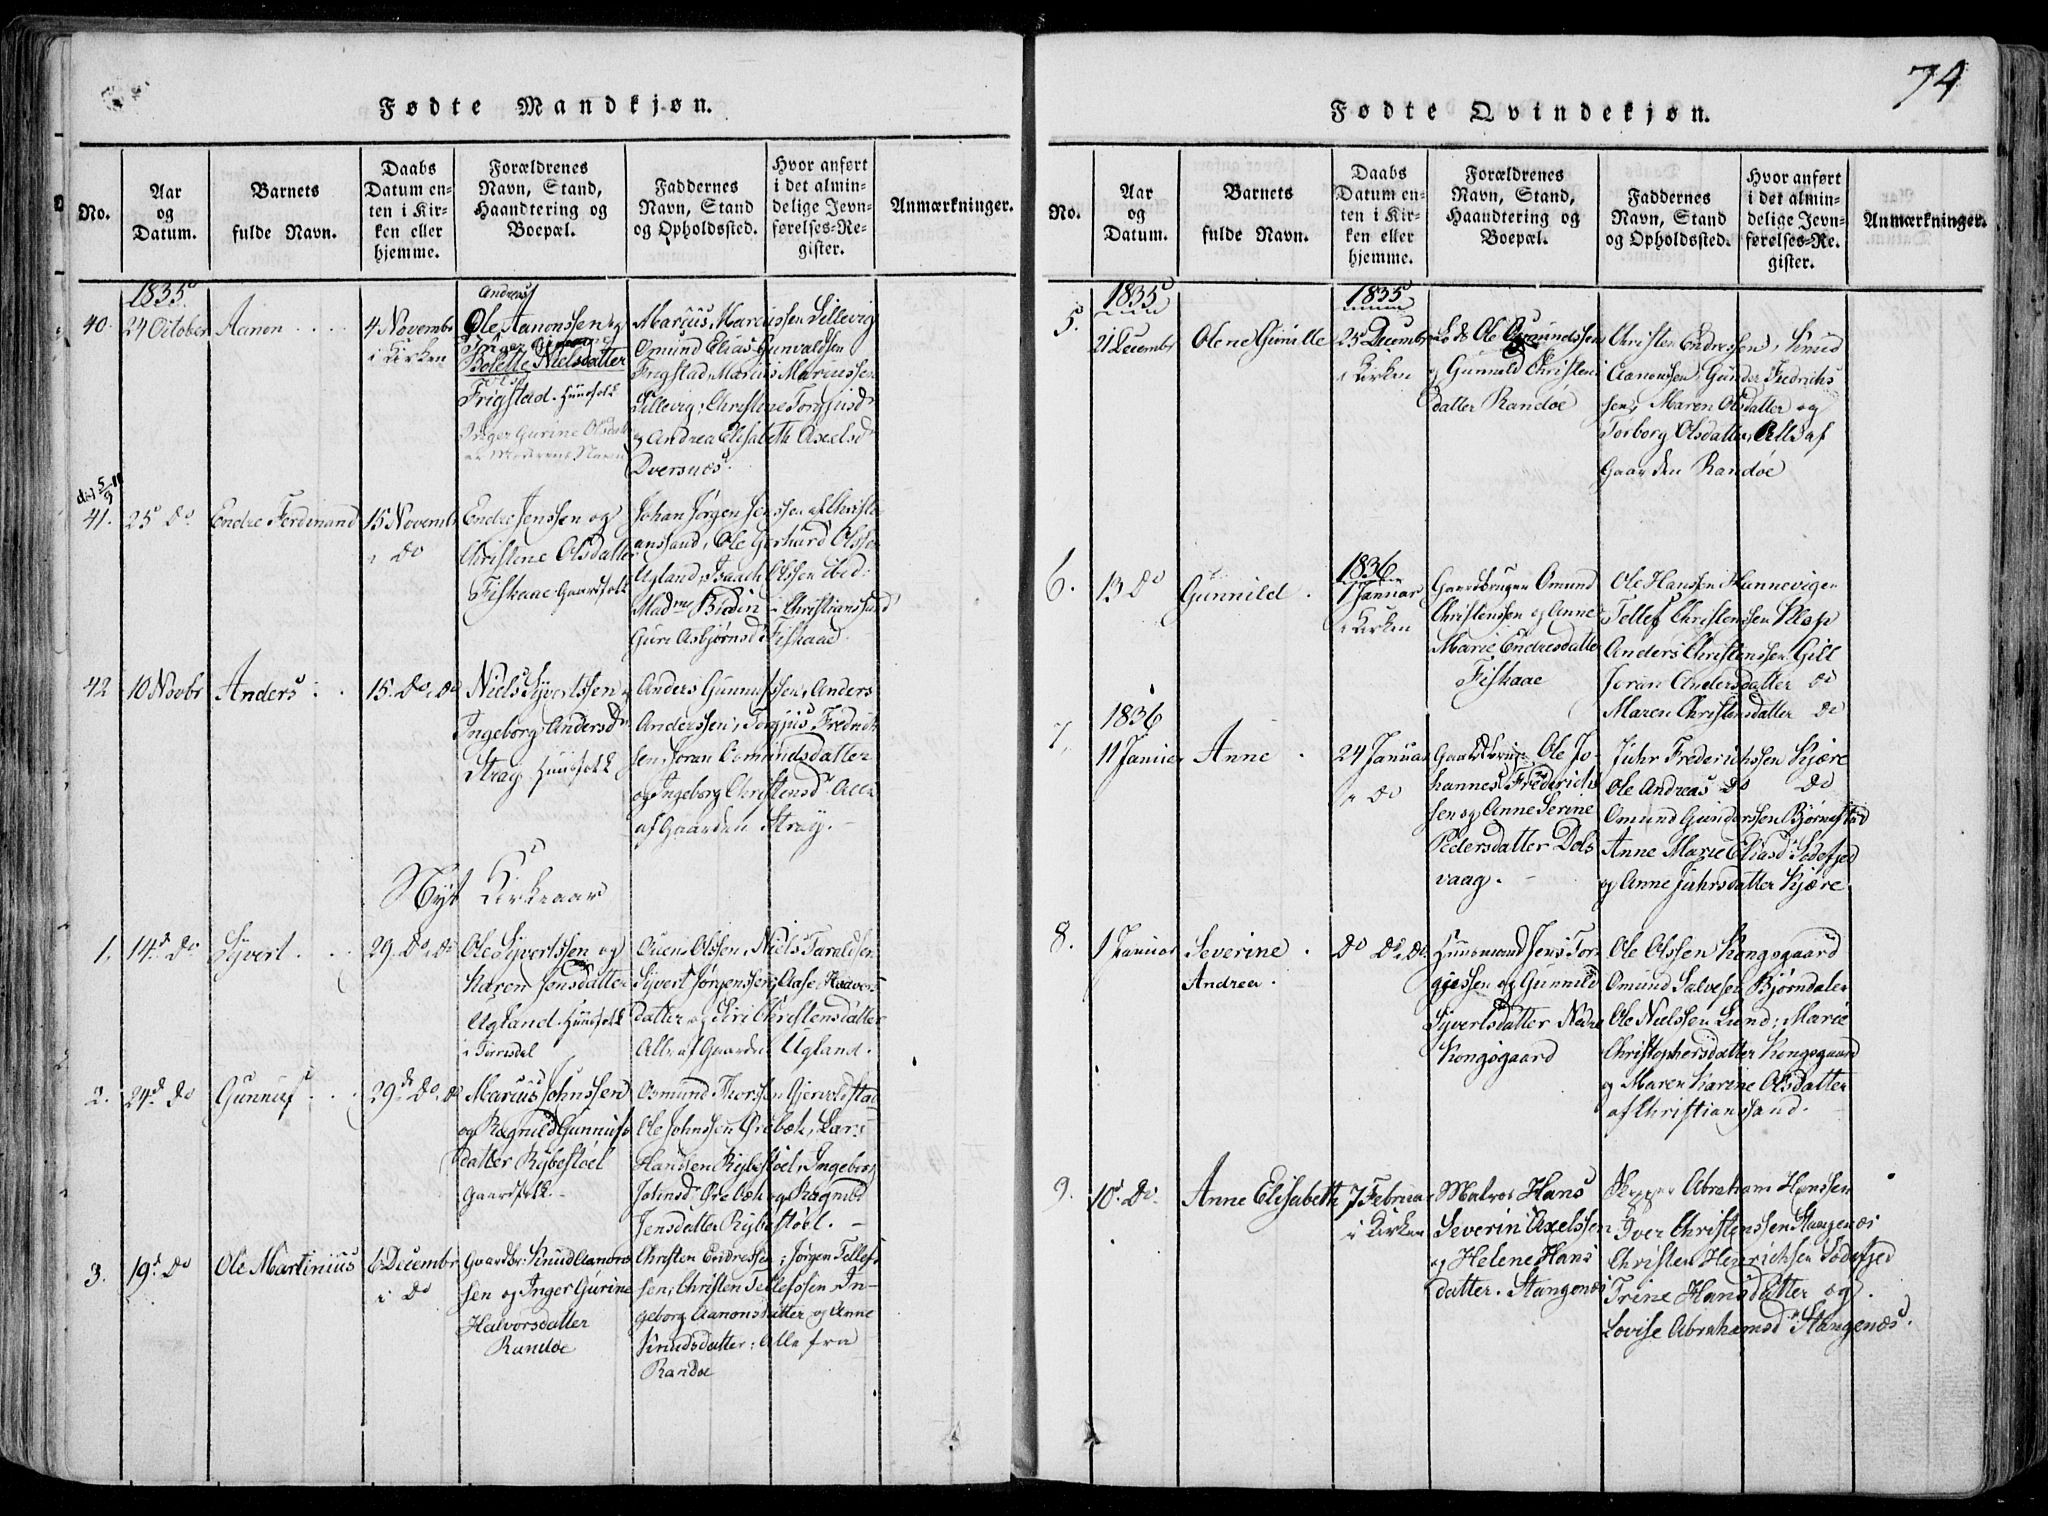 Fødte Mandkjøn.
No.
Aar
og
Datum.
Barnets
fulde Navn.
Daabs
Datum en-
ten i Kir-
ken eller
hjemme.
Forældrenes
Navn, Stand,
Haandtering og
Boepæl.
Faddernes
Navn, Stand
og Opholdssted.
Hvor anført
i det almin-
delige Jevn-
førelses-Re-
gister.
Anmærkninger.
1835
40.
24 October
Aanon
4 Novembr
i Kirken
Andreas
Ole Aanonssen og
Bolette Nielsdatter
Frigstad. Huusfolk
Inger Gurine Olsdatter
er Moderens Navn
Marcus Marcussen Lillevig
Omund Elias Gunvaldsen
Frigstad, Marcus Marcussen
Lillevig, Christine Torgjusd
og Andrea Elisabeth Axelsd
Dversnæs.
41.
25 Do
Endre Ferdinand
15 Novembr
i Do
Endre Jenssen og
Christene Olsdatter
Fiskaae Gaardfolk
Johan Jørgen Jenssen af Christi-
anssand, Ole Gerhard Olssen
Ugland, Isaach Olssen ibid:
Madme i Christianssand
Guri Asbjørnsd Fiskaae.
42
10 Novbr
Anders
15. Do i Do
Niels Syvertssen og
Ingeborg Andersd
Stray Huusfolk
Anders Gunnufssen, Anders
Anderssen, Torgjus Fredrik-
sen, Joran Osmundsdatter
og Ingeborg Christensd. Alle
af Gaarden Stray.
Nyt Kirkeaar
1.
14d Do
Syvert
29. Do i Do
Ole Syvertssen og
Karen Jensdatter
Ugland. Huusfolk
i Torrisdal
Ouen Olssen, Niels Taraldsen
Syvert Jørgenssen, Aase Haavors
datter og Siri Christensdatter
Alle af Gaarden Ugland.
2.
24d Do
Gunnuf
29d Do i Do
Marcus Johnssen
og Ragnild Gunnufs
datter Rybestøel
Gaardfolk.
Osmund Thorssen Gjervoldstad
Ole Johnssen Ørebæk, Lars
Hanssen Rybestøel, Ingeborg
Johnsd Ørebæk og Ragnild
Jensdatter Rybestøel.
3.
19d Do
Ole Martinius
6 Decembr
i Do
Gaardbr: Knud Aanon-
sen og Inger Gurine
Halvorsdatter
Randøe
Christen Endressen; Jørgen Tellef-
sen; Christen Tellefssen, In-
geborg Aanonsdatter og Anne
Knudsdatter; Alle fra
Randøe
74
Fødte Qvindekjøn.
No.
Aar
og
Datum.
Barnets
fulde Navn.
Daabs
Datum en-
ten i Kir-
ken eller
hjemme.
Forældrenes
Navn, Stand,
Haandtering og
Boepæl.
Faddernes
Navn, Stand
og Opholdssted.
Hvor anført
i det almin-
delige Jevn-
førelses-Re-
gister.
Anmærkninger.
5.
1835
21 Decembr
Olene Gunille
1835
25 Decembr
i Kirken
Ole Osmundssen
og Gunnild Christens
datter Randøe
Christen Endressen, Knud
Aanonssen, Gunder Fredrichs
sen, Maren Olsdatter og
Torborg Olsdatter, Alle af
Gaarden Randøe
6.
13 Do
Gunnild
1836
1 Januar
i Kirken
Gaardbruger Omund
Christenssen og Anne
Marie Endresdatter
Fiskaae
Ole Hanssen Hannevigen
Tellef Christenssen Klep
Anders Christenssen Gill
Joran Andersdatter Do
Maren Christensdatter Do
7.
1836
11 Januar
Anne
24 Januar
i Do
Gaardbruger Ole Jo-
hannes Frederichs
sen og Anne Serine
Pedersdatter Dols
vaag.
Juhr Frederichssen Kjære
Ole Andreas Do Do
Omund Gunderssen Bjørnestad
Anne Marie Eliasd Sodefjed
og Anne Juhrsdatter Kjære
8.
1 Januar
Severine
Andrea.
Do Do i Do
Huusmand Jens Tor-
gjessen og Gunnild
Syvertsdatter Nedre
Kongsgaard
Ole Olssen Kongsgaard
Omund Salvesen Bjørndalen
Ole Nielssen Lund; Marie
Christophersdatter Kongsgaard
og Maren Karine Olsdatter
af Christianssand.
9.
10d Do
Anne Elisabeth
7 Februar
i Kirken
Matros Hans
Severin Axelssen
og Helene Hans
datter. Stangenæs
Skipper Abraham Hanssen
Iver Christenssen Stangenæs
Christen Henrichsen Sodefjed
Trine Hansdatter og
Lovise Abrahamsd Stangenæs.